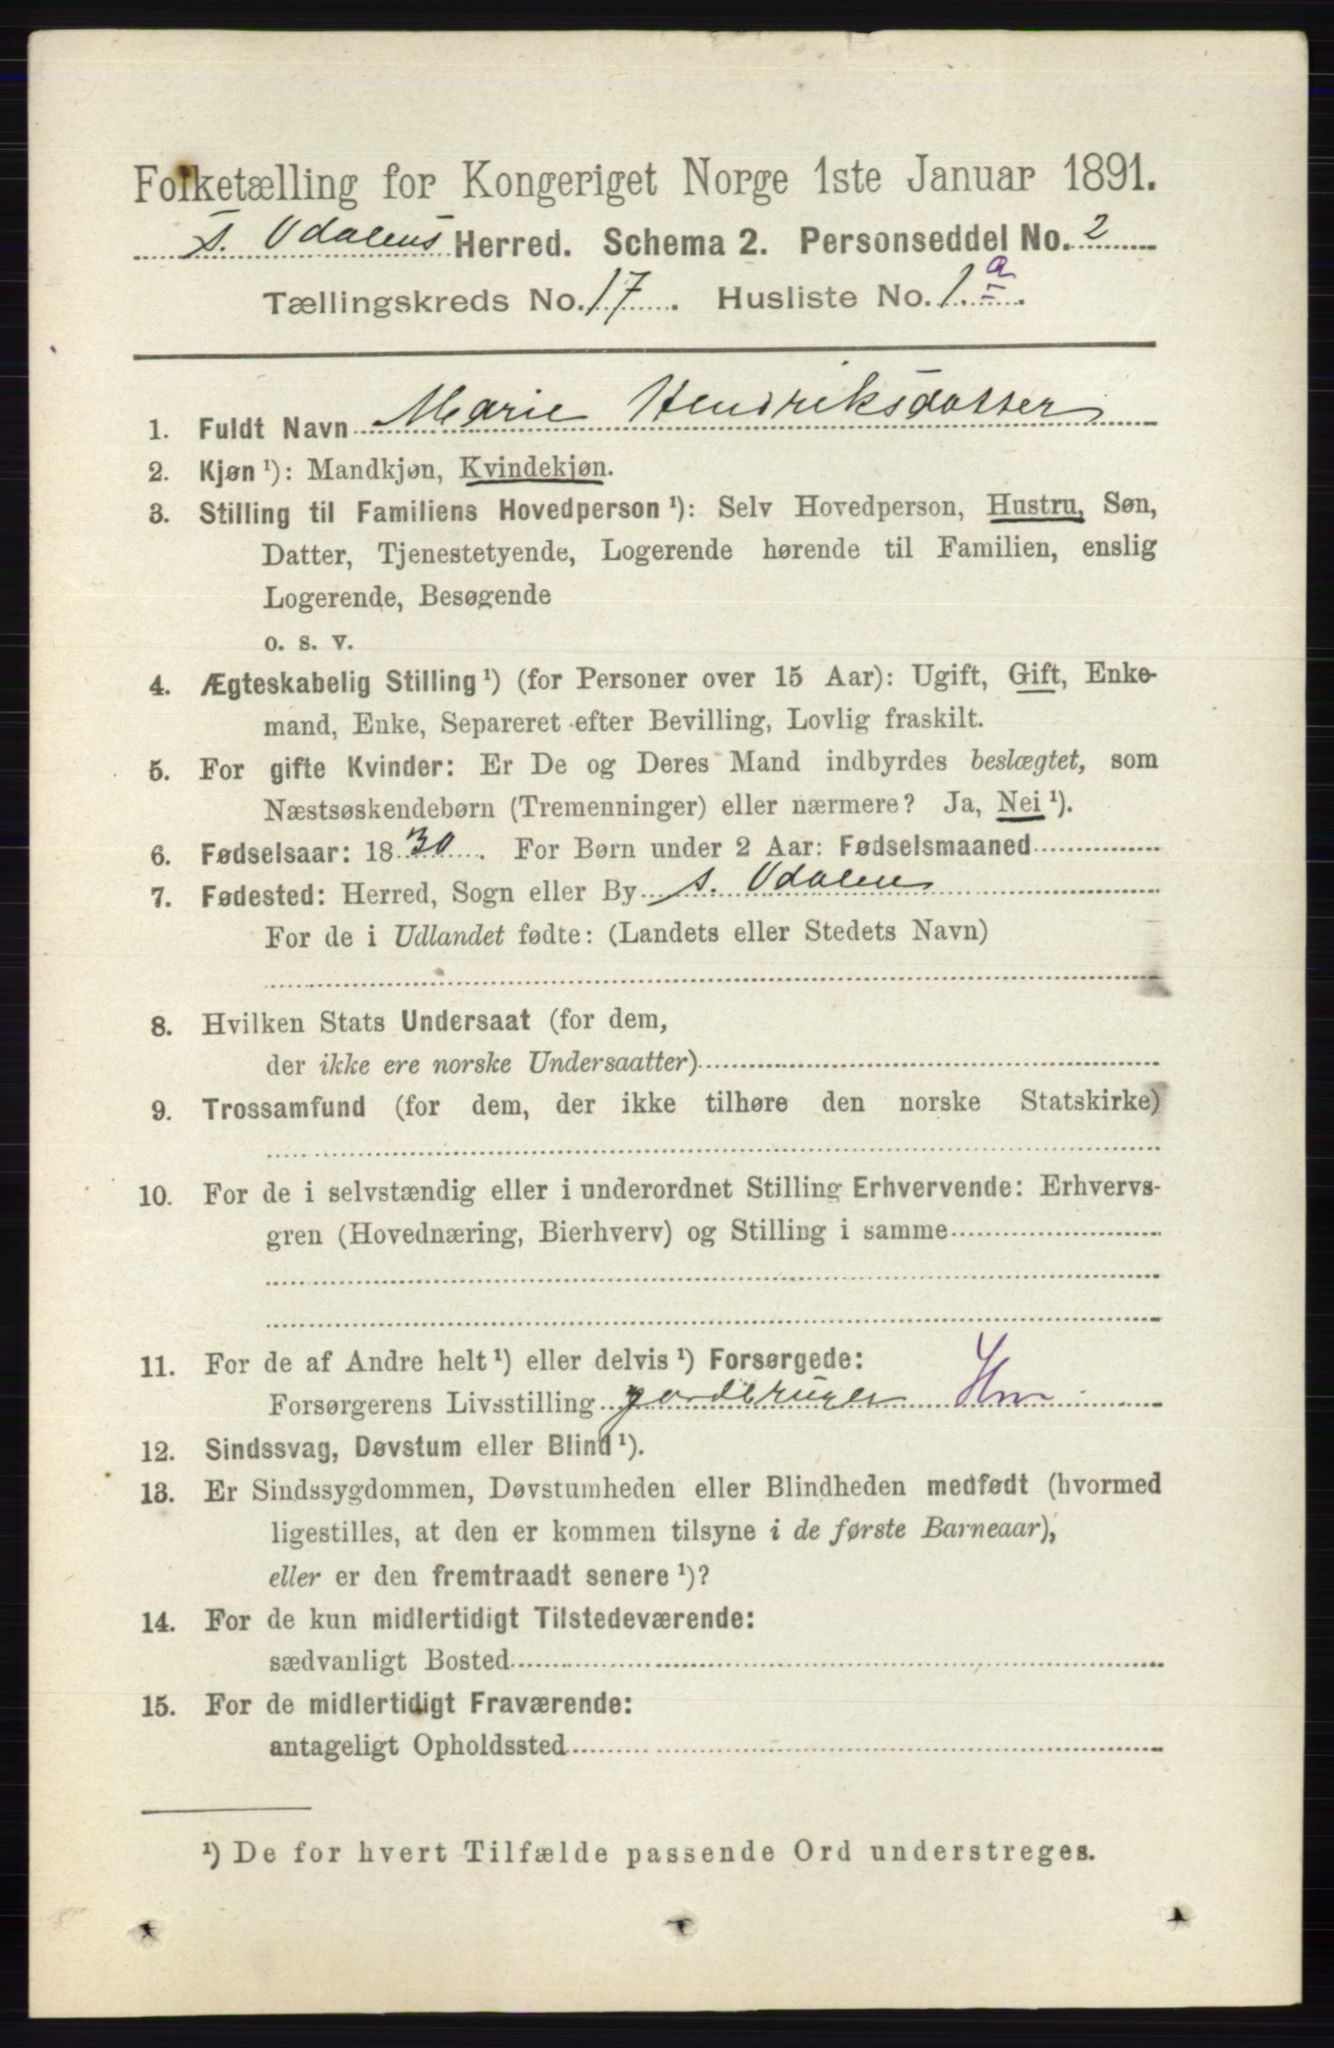 Folketælling for Kongeriget Norge 1ste Januar 1891.
S. Odalens Herred. Schema 2. Personseddel No. 2
Tællingskreds No. 17. Husliste No. 1.a
1. Fuldt Navn Marie Hendriksdatter
2. Kjøn ¹): Mandkjøn, Kvindekjøn.
3. Stilling til Familiens Hovedperson ¹): Selv Hovedperson, Hustru, Søn,
Datter, Tjenestetyende, Logerende hørende til Familien, enslig
Logerende, Besøgende
o. s. v.
4. Ægteskabelig Stilling ¹) (for Personer over 15 Aar): Ugift, Gift, Enke-
mand, Enke, Separeret efter Bevilling, Lovlig fraskilt.
5. For gifte Kvinder: Er De og Deres Mand indbyrdes beslægtet, som
Næstsøskendebørn (Tremenninger) eller nærmere? Ja, Nei ¹).
6. Fødselsaar: 1830. For Børn under 2 Aar: Fødselsmaaned
7. Fødested: Herred, Sogn eller By s. Odalen
For de i Udlandet fødte: (Landets eller Stedets Navn)
8. Hvilken Stats Undersaat (for dem,
der ikke ere norske Undersaatter)
9. Trossamfund (for dem, der ikke tilhøre den norske Statskirke)
10. For de i selvstændig eller i underordnet Stilling Erhvervende: Erhvervs-
gren (Hovednæring, Bierhverv) og Stilling i samme
11. For de af Andre helt ¹) eller delvis ¹) Forsørgede:
Forsørgerens Livsstilling gardbruger Hm
12. Sindssvag, Døvstum eller Blind ¹).
13. Er Sindssygdommen, Døvstumheden eller Blindheden medfødt (hvormed
ligestilles, at den er kommen tilsyne i de første Barneaar),
eller er den fremtraadt senere ¹)?
14. For de kun midlertidigt Tilstedeværende:
sædvanligt Bosted
15. For de midlertidigt Fraværende:
antageligt Opholdssted
¹) De for hvert Tilfælde passende Ord understreges.